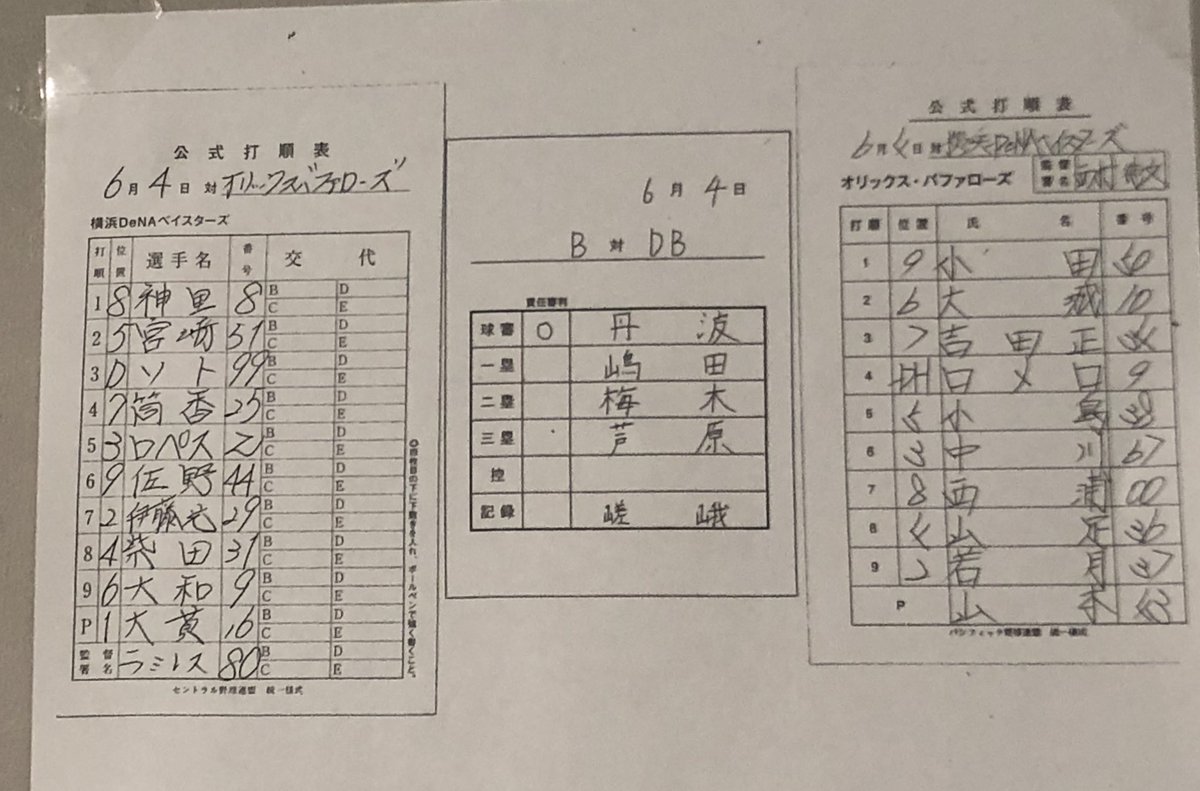 公式打順表
6月4日 対 オリックスバファローズ
横浜DeNAベイスターズ
打順 位置 選手名 番号 交代
1 8 神里 8 B D C E
2 5 宮﨑 51 B D C E
3 D ソト 99 B D C E
4 7 筒香 25 B D C E
5 3 ロペス 2 B D C E
6 9 佐野 44 B D C E
7 2 伊藤光 29 B D C E
8 4 柴田 31 B D C E
9 6 大和 9 B D C E
P 1 大貫 16 B D C E
監督署名 ラミレス 80 B D C E
セントラル野球連盟 統一様式
6月4日
B 対 DB
責任審判
球審 ○ 丹波
一塁 嶋田
二塁 梅木
三塁 芦原
控
記録 嵯峨
公式打順表
6月4日 対 横浜DeNAベイスターズ
オリックス・バファローズ 監督署名 西村
打順 位置 氏名 番号
1 9 小田 50
2 6 大城 10
3 7 吉田正
4 DH ロメロ 9
5 5 小島 38
6 3 中川 67
7 8 西浦 00
8 4 山足 36
9 2 若月 37
P 山本
パシフィック野球連盟 統一様式